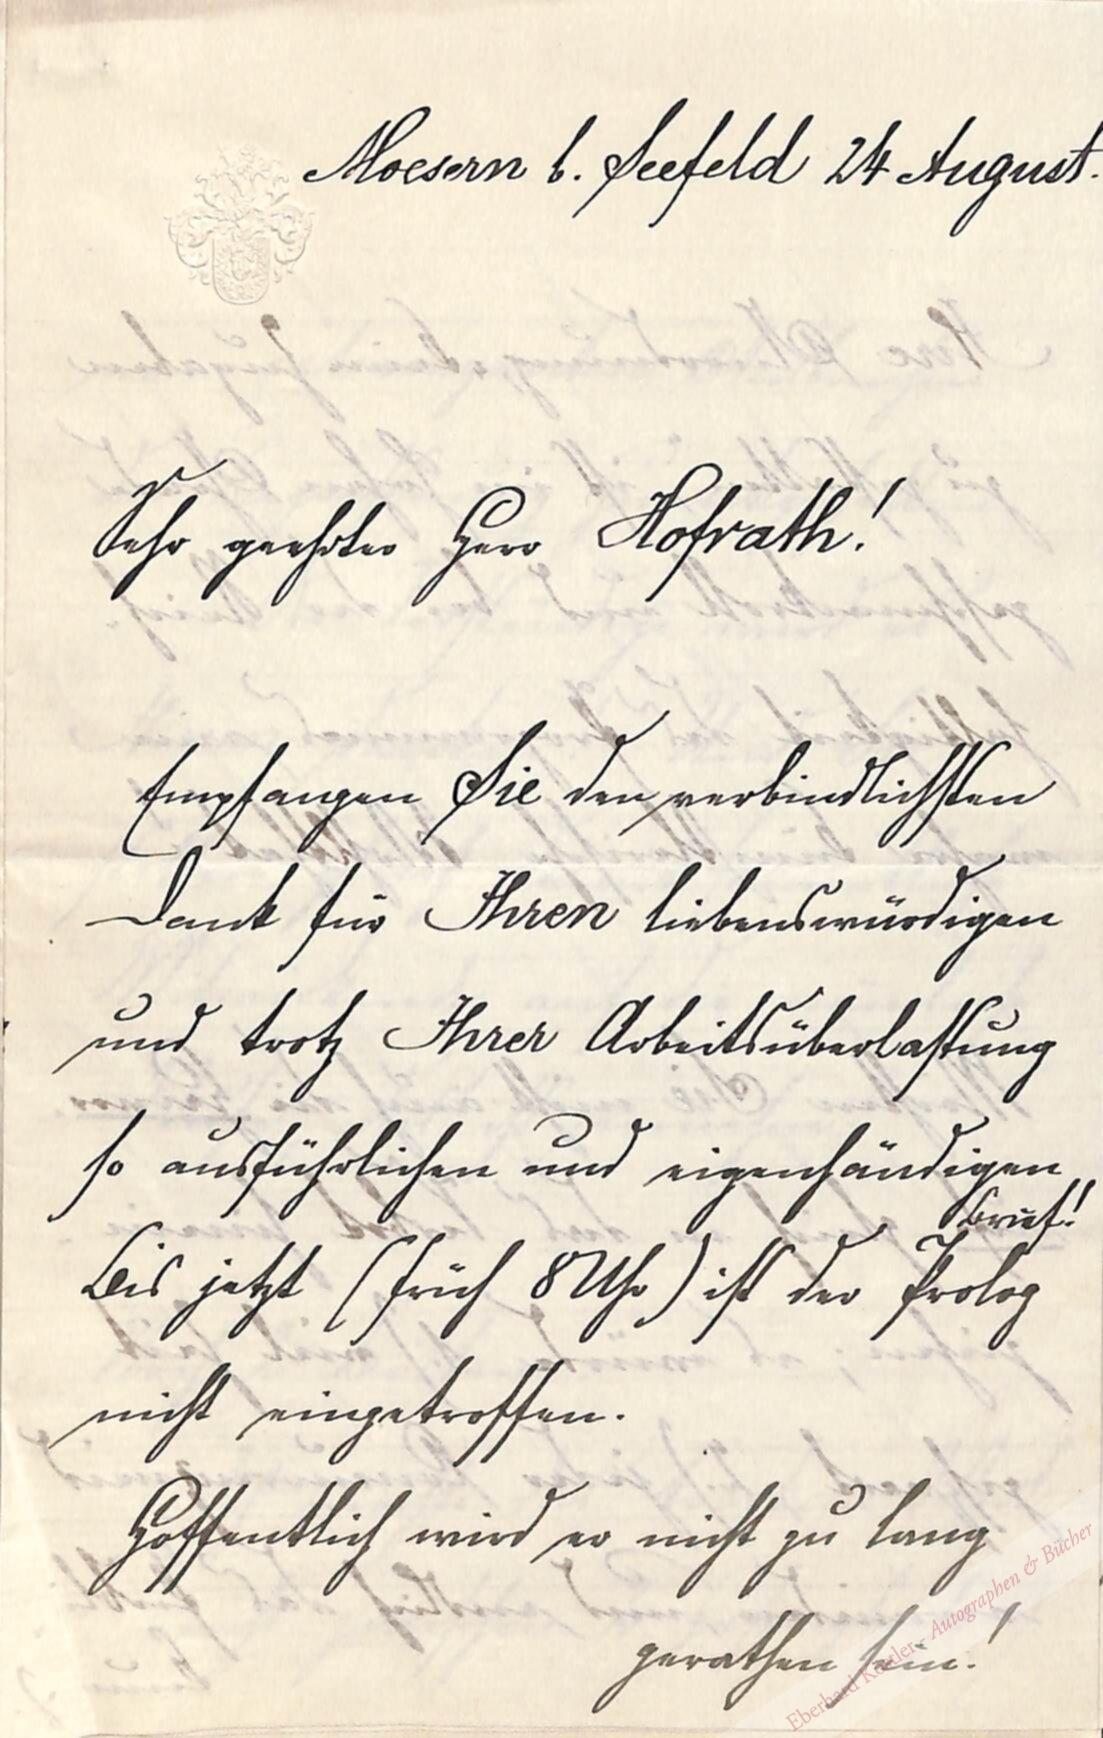 Moesern b. Seefeld 24 August.
Sehr geehrter Herr Hofrath!
Empfangen Sie den verbindlichsten
Dank für Ihren liebenswürdigen
und trotz Ihrer Arbeitsüberlastung
so ausführlichen und eigenhändigen
Brief!
Bis jetzt (früh 8 Uhr) ist der Prolog
nicht eingetroffen.
Hoffentlich wird er nicht zu lang
gerathen sein!
Eberhard Köstler - Autographen & Bücher